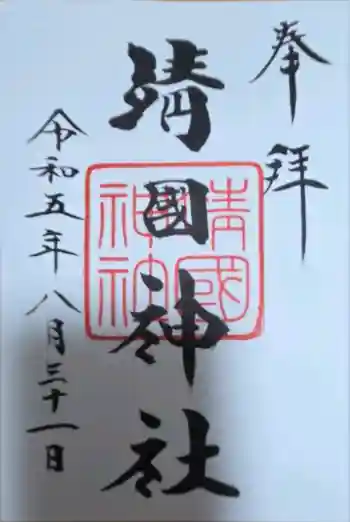 奉拝
靖國神社
靖國
神社
令和五年八月三十一日